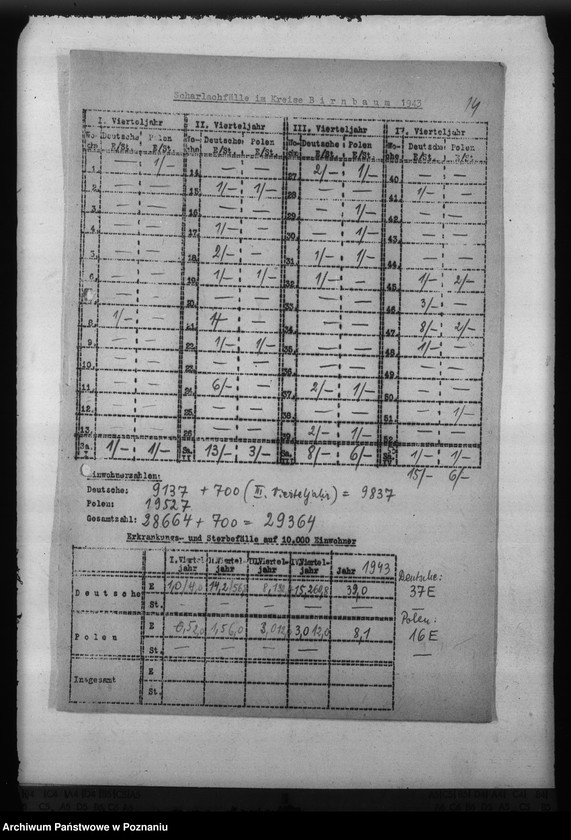 Scharlachfälle im Kreise Birnbaum 1943
14
I. Vierteljahr II. Vierteljahr III. Vierteljahr IV. Vierteljahr
Wo- Deutsche Polen Wo- Deutsche Polen Wo- Deutsche Polen Wo- Deutsche Polen
che E/St. E/St. che E/St. E/St. che E/St. E/St. che E/St. E/St.
1. — 1/— 14. — — 27. 2/— 1/— 40. — —
2. — — 15. 1/— 1/— 28. — — 41. 1/— —
3. — — 16. — — 29. — 1/— 42. — —
4. — — 17. 1/— — 30. — 1/— 43. — —
5. — — 18. 2/— — 31. 1/— 1/— 44. — —
6. — — 19. 1/— 1/— 32. 1/— — 45. 1/— 2/—
7. — — 20. — — 33. — — 46. 3/— —
8. 1/— — 21. 1/— — 34. — — 47. 8/— 2/—
9. — — 22. 1/— 1/— 35. — — 48. 1/— —
10. — — 23. — — 36. — — 49. — —
11. — — 24. 6/— — 37. 2/— 1/— 50. — —
12. — — 25. — — 38. — — 51. — 1/—
13. — — 26. — — 39. 2/— 1/— 52. — —
Sa. I 1/— 1/— Sa. II 13/— 3/— Sa. III 8/— 6/— 1/— 1/—
15/— 6/—
Einwohnerzahlen:
Deutsche: 9137 + 700 (III. Vierteljahr) = 9837
Polen: 19527
Gesamtzahl: 28664 + 700 = 29364
Erkrankungs- und Sterbefälle auf 10.000 Einwohner
I. Viertel- II. Viertel- III. Viertel- IV. Viertel- Jahr 1943
jahr jahr jahr jahr
Deutsche E 1,0/4,0 14,2/ 8,1 15,2 39,0
St. — — — —
Polen E 0,5 1,5 6,0 3,0 12,0 3,0 12,0 8,1
St. — — — —
Insgesamt E
St.
Deutsche:
37 E
—
Polen:
16 E
—
Archiwum Państwowe w Poznaniu